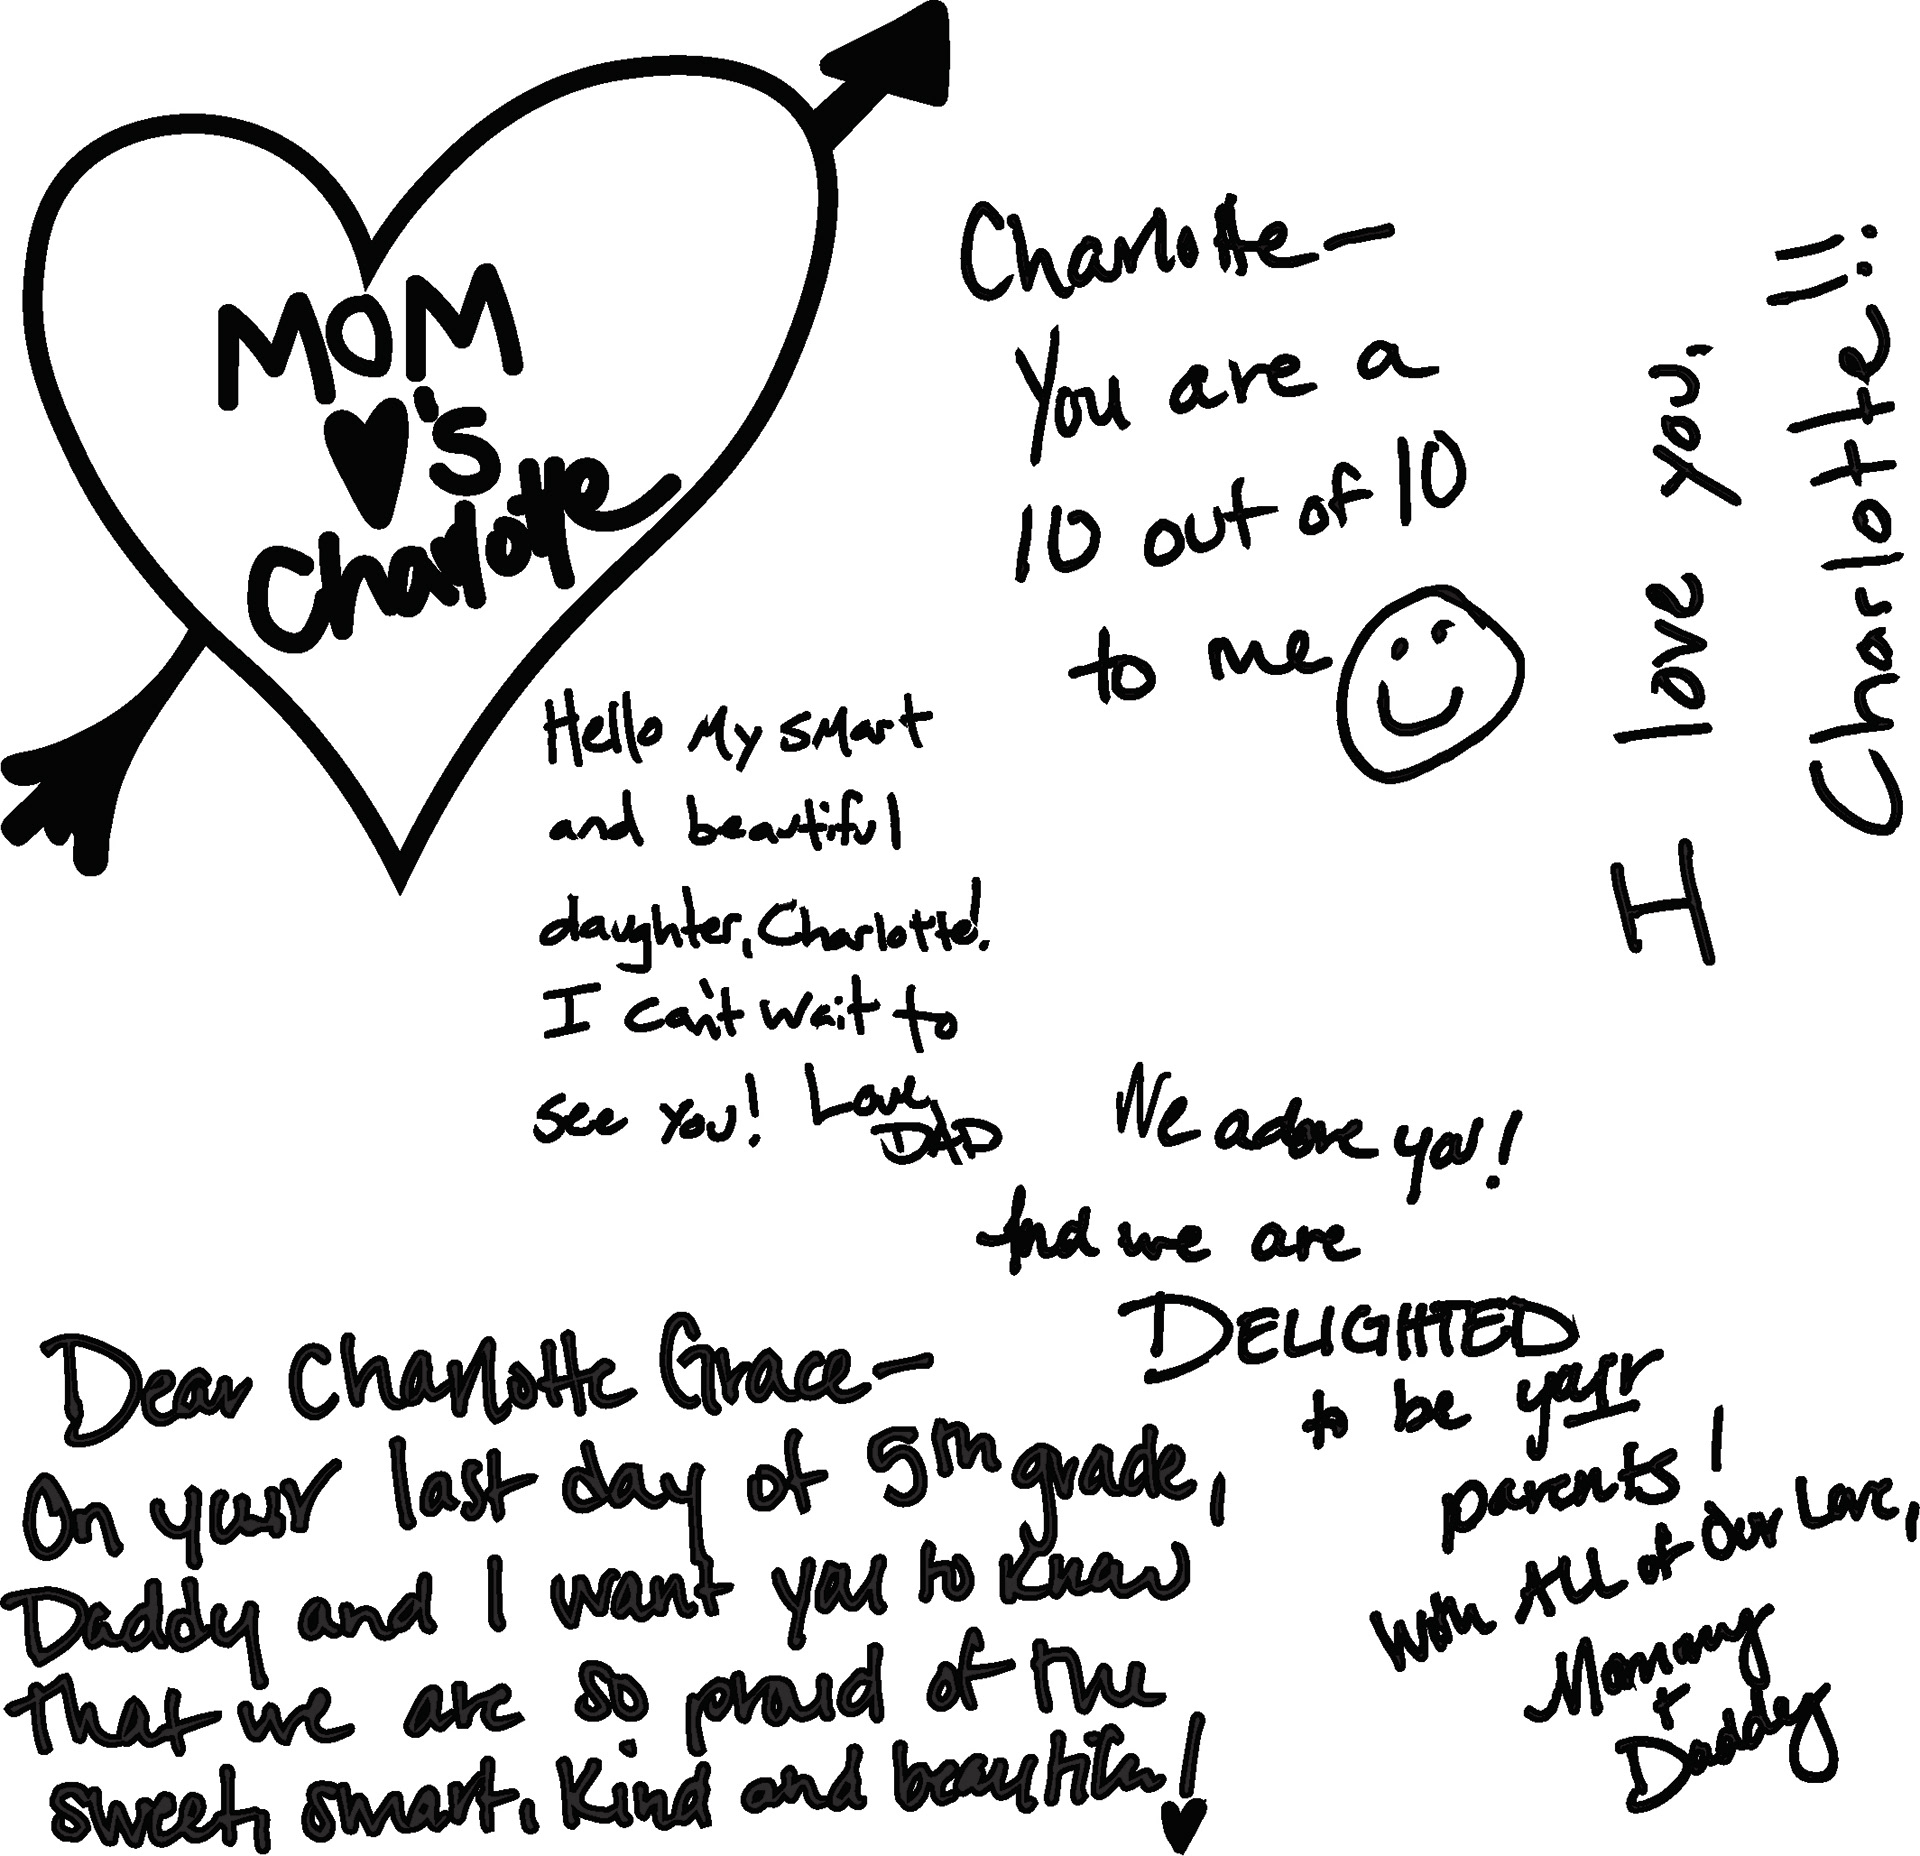 MOM
♥'s
Charlotte
Charlotte—
You are a
10 out of 10
to me
I love you,
Charlotte!!
Hello My SMart
and beautiful
daughter, Charlotte!
I can't wait to
see you! Love,
DAD
Dear Charlotte Grace—
On your last day of 5th grade,
Daddy and I want you to know
that we are so proud of the
sweet, smart, kind and beautiful!
We adore you!
And we are
DELIGHTED
to be your
parents!
With All of Our Love,
Mommy
+
Daddy